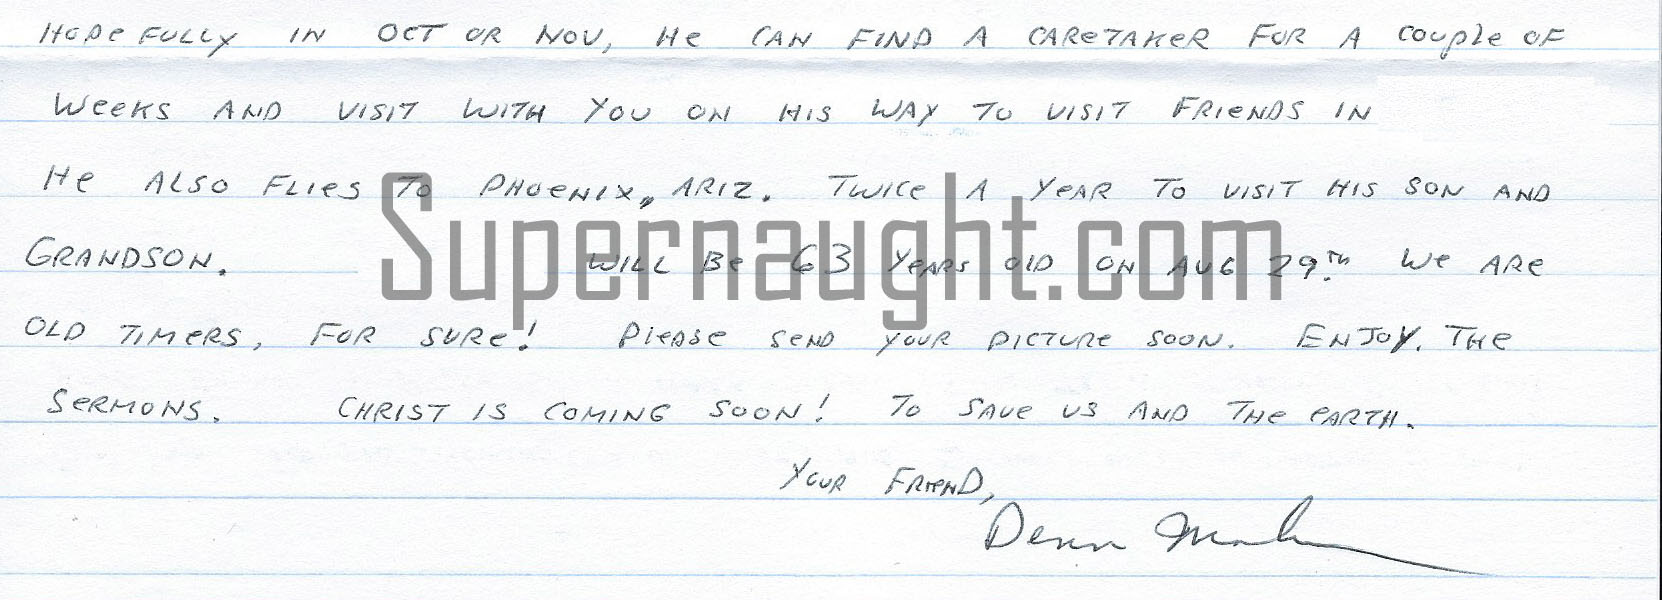 HOPEFULLY IN OCT OR NOV, HE CAN FIND A CARETAKER FOR A COUPLE OF
WEEKS AND VISIT WITH YOU ON HIS WAY TO VISIT FRIENDS IN
HE ALSO FLIES TO PHOENIX, ARIZ. TWICE A YEAR TO VISIT HIS SON AND
GRANDSON. WILL BE 63 YEARS OLD ON AUG 29TH. WE ARE
Supernaught.com
OLD TIMERS, FOR SURE! PLEASE SEND YOUR PICTURE SOON. ENJOY. THE
SERMONS. CHRIST IS COMING SOON! TO SAVE US AND THE EARTH.
YOUR FRIEND,